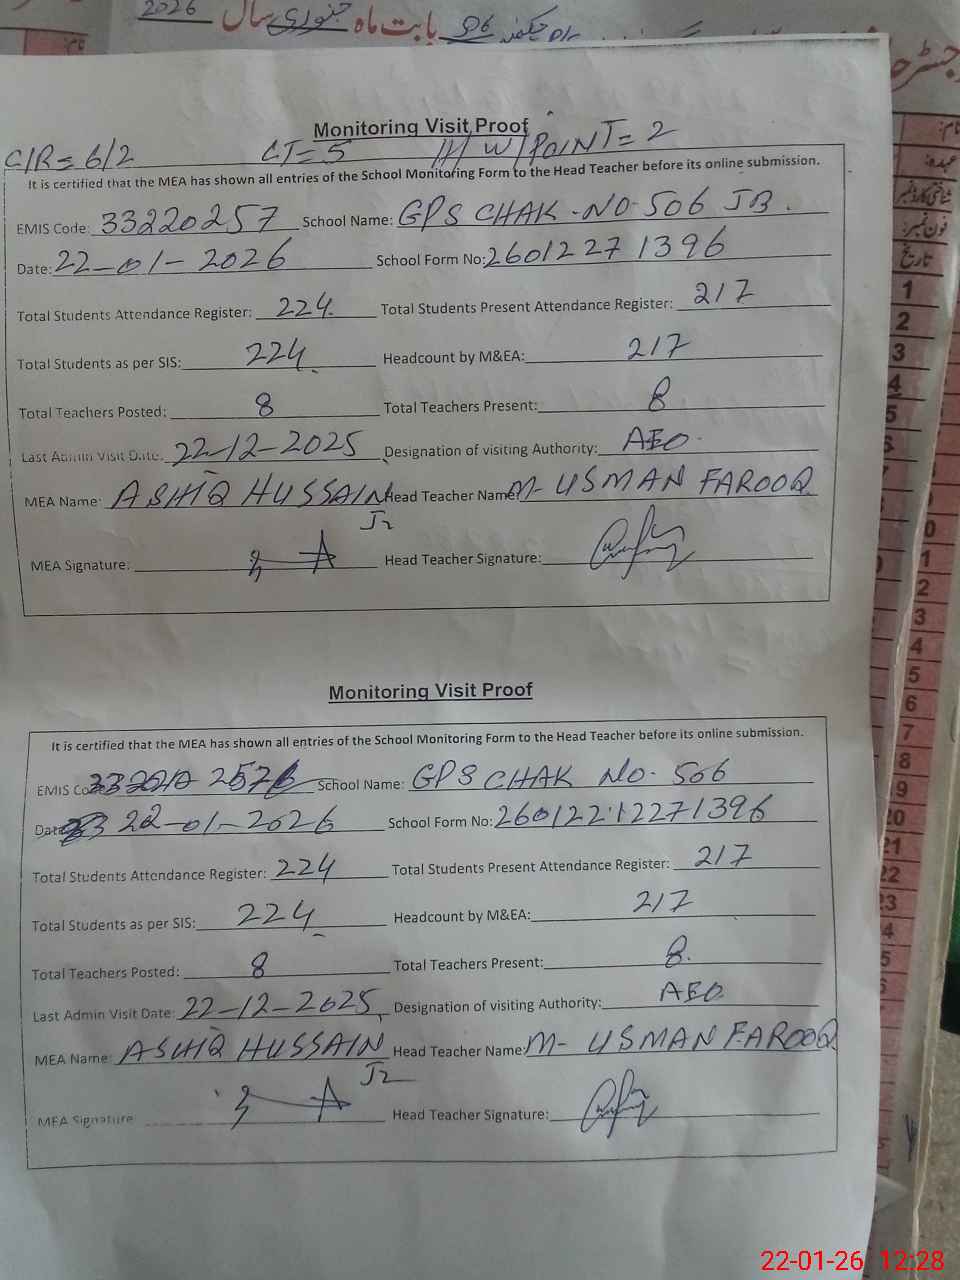 2026 سال جنوری بابت ماہ 506
Monitoring Visit Proof
C/R= 6/2 CT= 5 H/W/POINT= 2
It is certified that the MEA has shown all entries of the School Monitoring Form to the Head Teacher before its online submission.
EMIS Code: 33220257 School Name: GPS CHAK NO 506 JB.
Date: 22-01-2026 School Form No: 26012271396
Total Students Attendance Register: 224 Total Students Present Attendance Register: 217
Total Students as per SIS: 224 Headcount by M&EA: 217
Total Teachers Posted: 8 Total Teachers Present: 8
Last Admin Visit Date: 22-12-2025 Designation of visiting Authority: AEO
MEA Name: ASHIQ HUSSAIN Head Teacher Name: M- USMAN FAROOQ
MEA Signature: Head Teacher Signature:
Monitoring Visit Proof
It is certified that the MEA has shown all entries of the School Monitoring Form to the Head Teacher before its online submission.
EMIS School Name: GPS CHAK NO- 506
Date 22-01-2026 School Form No: 26012212271396
Total Students Attendance Register: 224 Total Students Present Attendance Register: 217
Total Students as per SIS: 224 Headcount by M&EA: 217
Total Teachers Posted: 8 Total Teachers Present: 8.
Last Admin Visit Date: 22-12-2025 Designation of visiting Authority: AEO
MEA Name: ASHIQ HUSSAIN Head Teacher Name: M- USMAN FAROOQ
MEA Signature: Head Teacher Signature:
نام:
عہدہ:
شناختی کارڈ نمبر
فون نمبر:
تاریخ
1
2
3
4
5
22-01-26 12:28